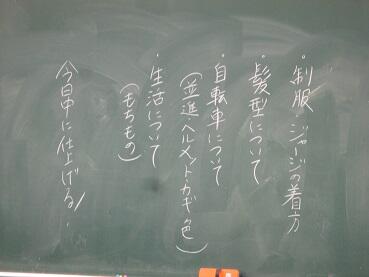 ・制服、ジャージの着方
・髪型について
・自転車について
(並進・ヘルメット・カギ・色)
・生活について
(もちもの)
今日中に仕上げる!